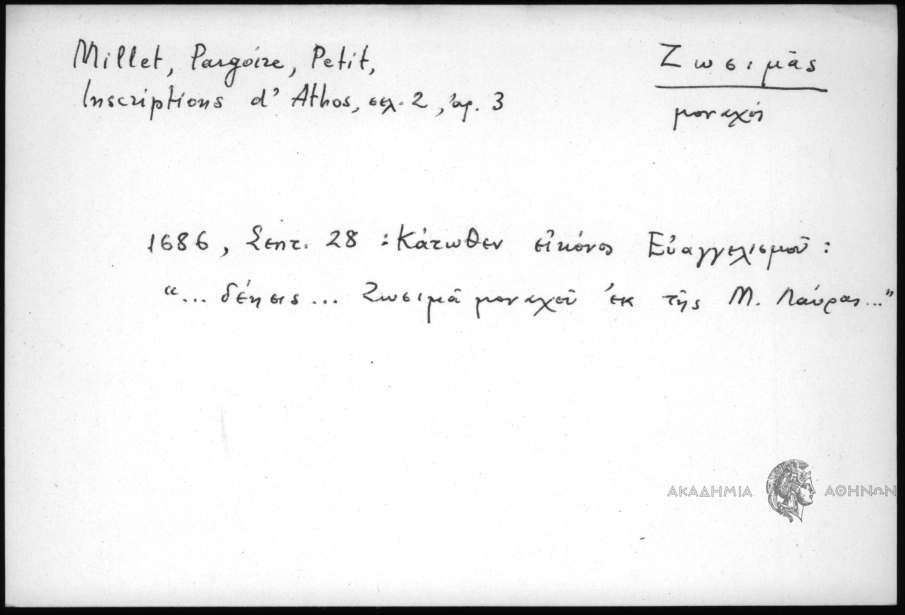 Millet, Pargoire, Petit,
Inscriptions d' Athos, σελ. 2, ἀρ. 3
Ζωσιμᾶς
μοναχός
1686, Σεπτ. 28 : Κάτωθεν εἰκόνος Εὐαγγελισμοῦ :
“... δέησις ... Ζωσιμᾶ μοναχοῦ ἐκ τῆς Μ. Λαύρας ...”
ΑΚΑΔΗΜΙΑ ΑΘΗΝΩΝ